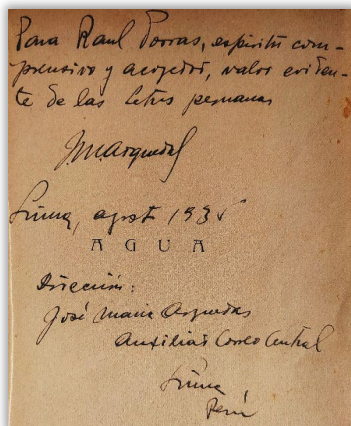 Para Raul Porras, espíritu com-
prensivo y acojedor, valor eviden-
te de las letras peruanas
JMArguedas
Lima, agost 1935
AGUA
Dirección:
José María Arguedas
Auxiliar Correo Central
Lima
Perú